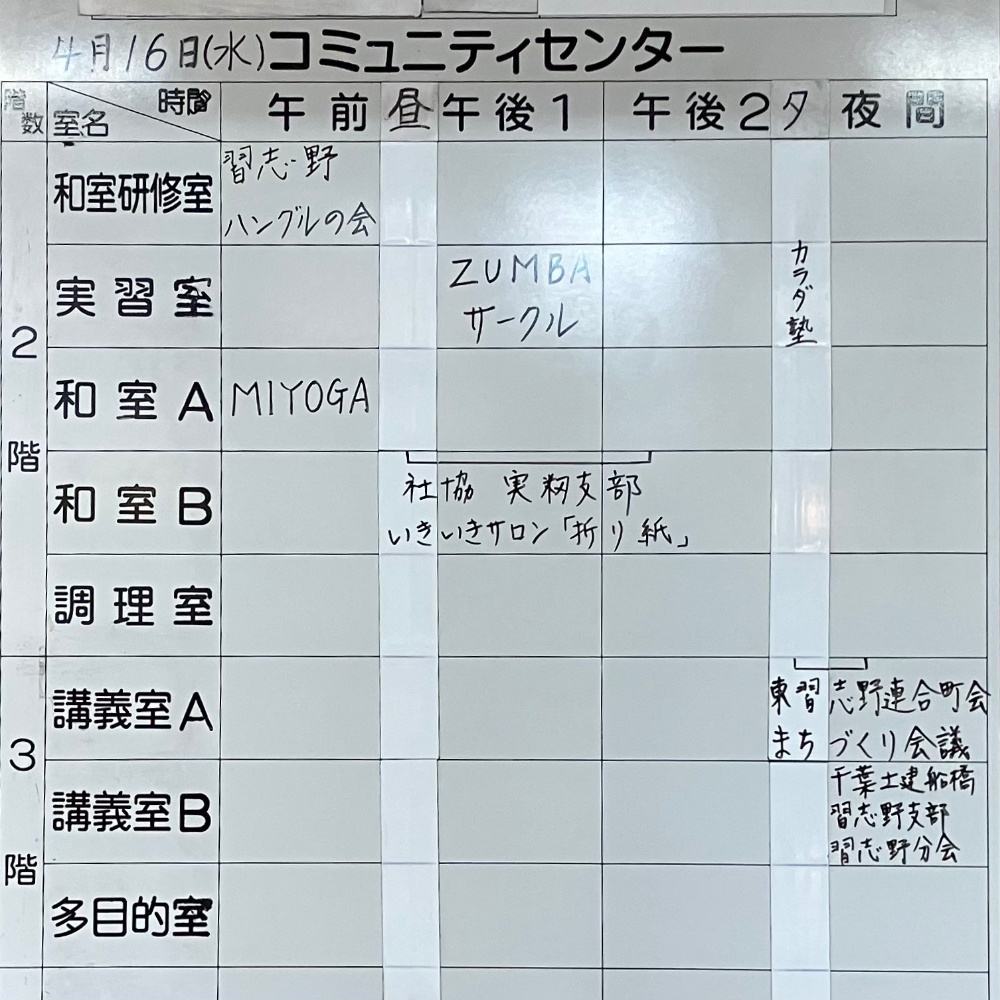 4月16日(水)コミュニティセンター
階数 室名 時間 午前 昼 午後1 午後2 夕 夜間
2階
和室研修室 習志野
ハングルの会
実習室 ZUMBA
サークル
カラダ塾
和室A MIYOGA
和室B 社協 実籾支部
いきいきサロン「折り紙」
調理室
3階
講義室A 東習志野連合町会
まちづくり会議
講義室B 千葉土建船橋
習志野支部
習志野分会
多目的室